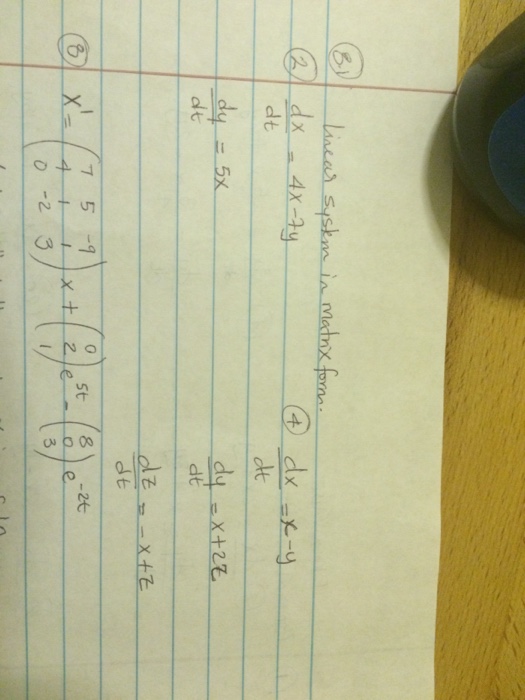 8.1 Linear system in matrix form.
② dx/dt = 4x-7y
dy/dt = 5x
④ dx/dt = x-y
dy/dt = x+2z
dz/dt = -x+z
⑧ X' = (7 5 -9
4 1 1
0 -2 3) x + (0
2
1) e^5t - (8
0
3) e^-2t